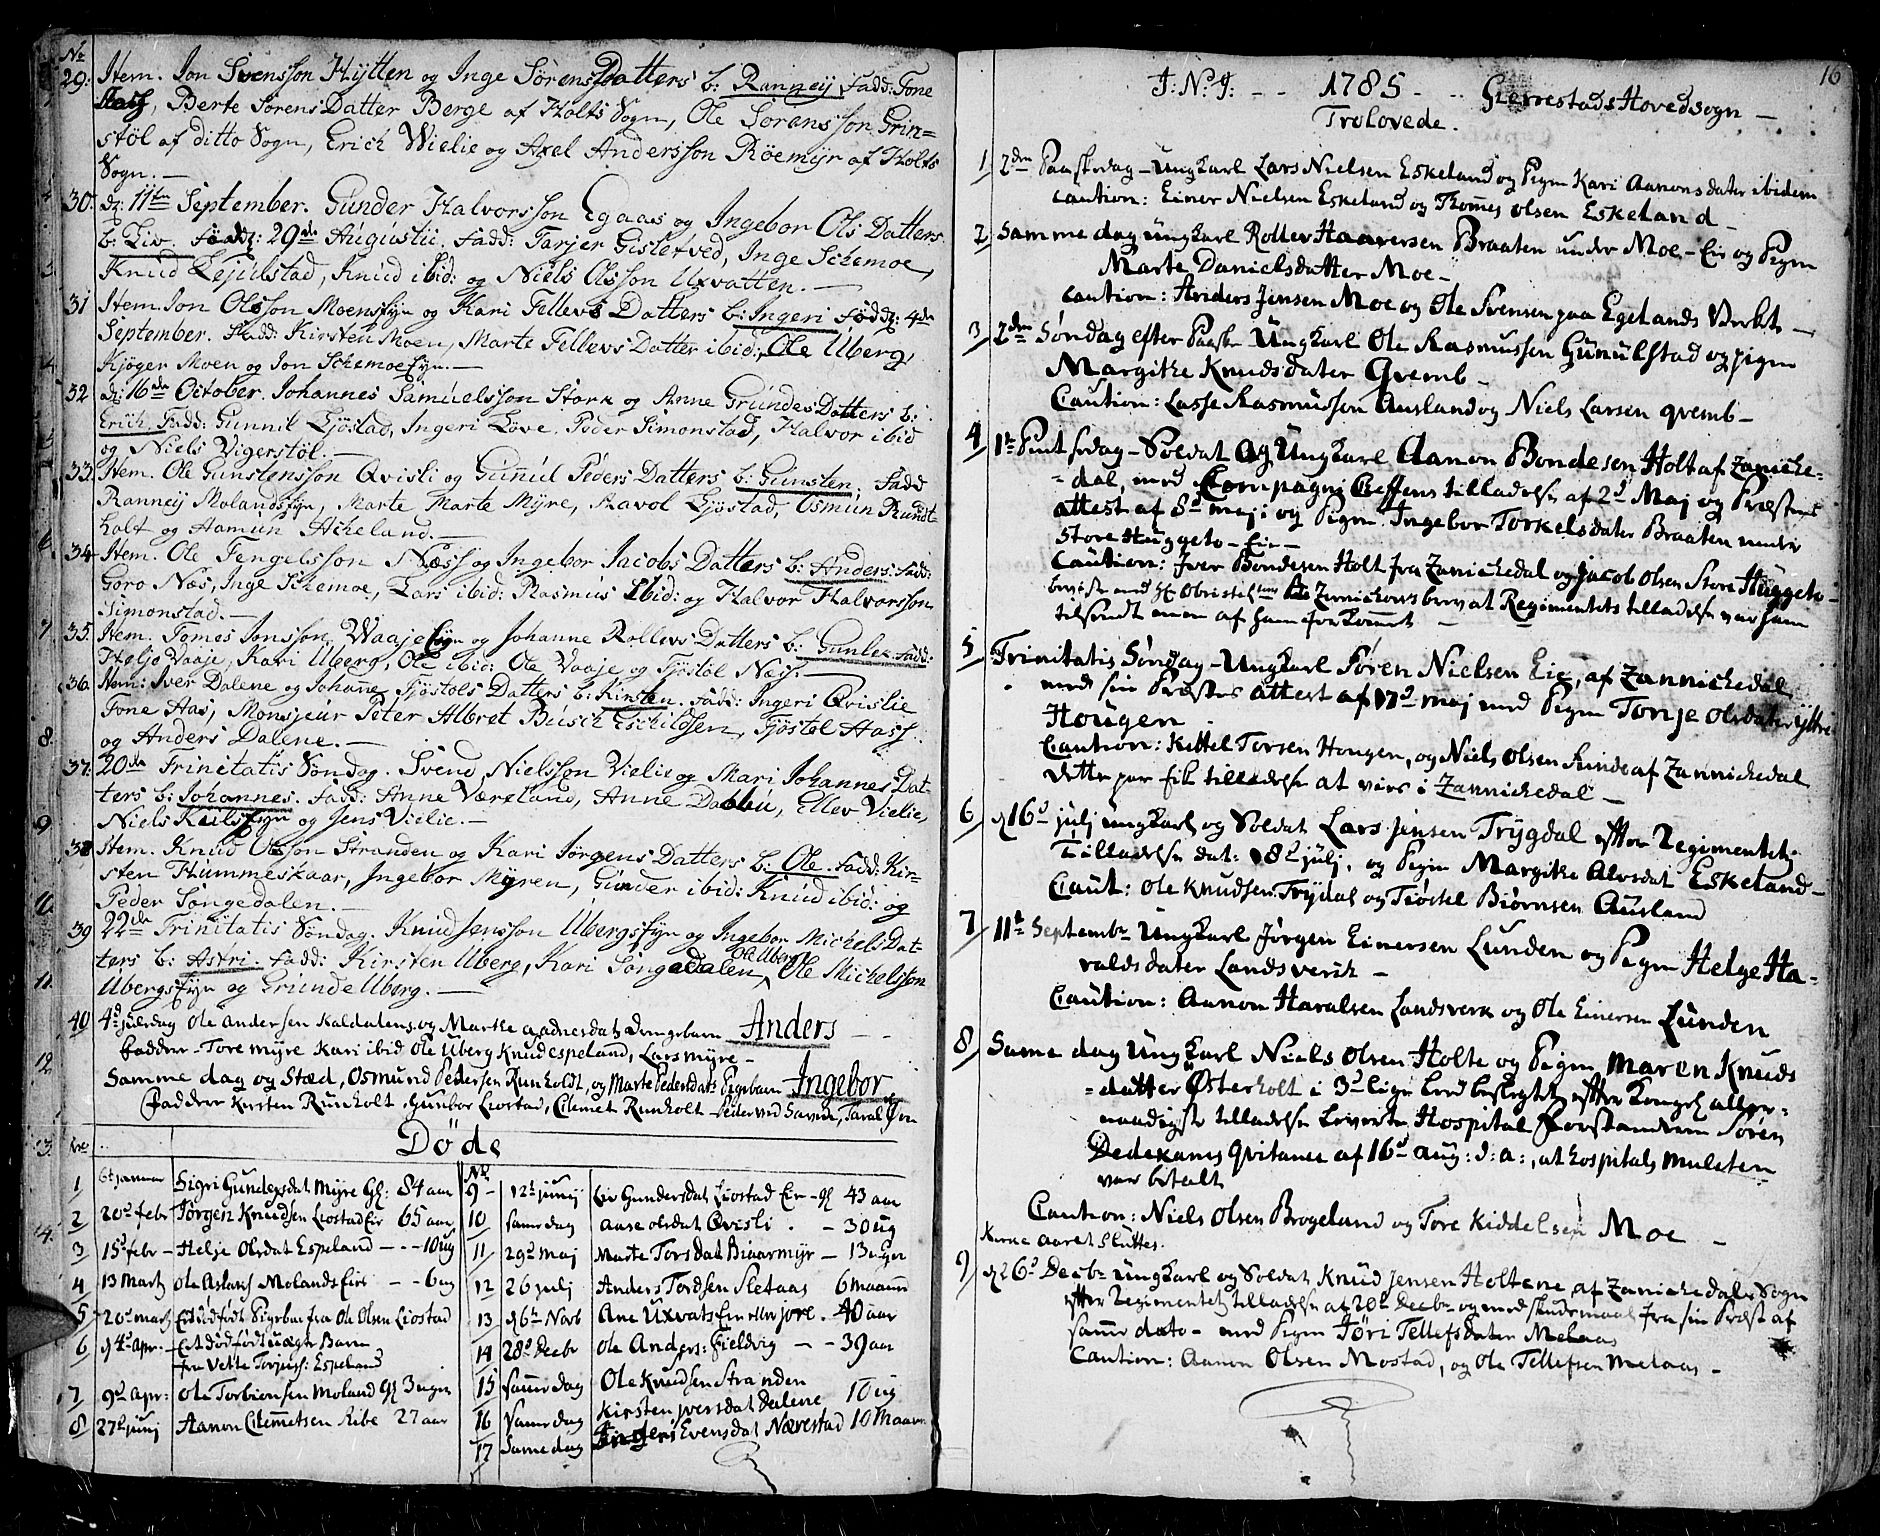 No
29. Item. Jon Svensson Hytten og Inge SörensDatters b: Ranneij Fadd: Tone
Hass, Berte Sörens Datter Berge af Holts Sogn, Ole Sörensson Grin-
stöl af ditto Sogn, Erich Wielie og Axel Andersson Röemyr af Holts
Sogn. —
30. d: 11te September. Gunder Halvorsson Egaas og Ingebor Ols Datters
b: Liv. Född: 29de Augustii. Fadd: Tarjer Gislefved, Inge Schemoe,
Knud Lejulstad, Knud ibid: og Niels Olsson Uxvatten. —
31 Item. Jon Olsson Moensfyn og Kari Tellevs Datters b: Ingeri. Född: 4de
September. Fadd: Kirsten Moen, Marte Tellevs Datter ibid:, Ole Uberg,
Kjöger Moen og Jon SchemoeEjn. —
32 d: 16de October. Johannes Samuelsson Stork og Anne Grundes Datters b:
Erich. Fadd: Gunnil Ljöstad, Ingeri Löve, Peder Simonstad, Halvor ibid
og Niels Vigerstöl. —
33. Item. Ole Gunstensson Qvisli og Gunnil Peders Datters b: Gunsten. Fadd
Ranneij Molandsfyn, Marte Myre, Ravol Ljöstad, Osmun Rundt
holt og Aamun Acheland. —
34. Item. Ole Tengelsson Næss og Ingebor Jacobs Datters b: Anders: Fadd:
Goro Næs, Inge Schemoe, Lars ibid: Rasmus ibid: og Halvor Halvorsson
Simonstad. —
35. Item. Tomes Jonsson Waaje Ejn og Johanne Rollevs Datters b: Gunler Fadd:
Heljo Vaaje, Kari Uberg, Ole ibid: Ole Vaaje og Tjöstöl Næss. —
36. Item: Iver Dalene og Johane Tjöstols Datters b: Kirsten. Fadd: Ingeri Qvislie
Tone Aas, Monsjeur Peter Albret Busch Eschildsen, Tjöstol Hass.
og Anders Dalene. —
37. 20de Trinitatis Söndag. Svend Nielsson Vielie og Mari Johannes Dat-
ters b: Johannes. Fadd: Anne Væreland, Anne Dabbu, Ellev Vielie,
Niels og Jens Vielie. —
38 Item. Knud Olsson Stranden og Kari Jörgens Datters b: Ole. Fadd: Kir-
sten Hummeskaar, Ingebor Myren, Gunder ibid: Knud ibid: og
Peder Songedalen. —
39 22de Trinitatis Söndag. Knud Jensson Ubergsfyn og Ingebor Michels Dat-
ters b: Astri. Fadd: Kirsten Uberg, Kari Songedalen, Ole Uberg Ole Michelsson
Ubergsfyn og Grunde Uberg. —
40 4d juledag Ole Andersen Kaldalens og Marthe Aadnesdat Drengebarn Anders —
Faddere - Tore myre Kari ibid Ole Uberg Knud espeland, Lars myre —
Samme dag og Stæd, Osmund Pedersen Runholdt, og Marte Pedersdats Pigebarn Ingebor
Faddere Kirsten Runholt, Gunbor Liostad, Clemet Runholt
Döde
No
1 6t Januar Sigri Gundersdat Myre Gl: 84 aar
2 20d febr Jörgen Knudsen Liostad Eie 65 aar
3 15d febr - Helje Olsdat Espeland - - - 10 ug
4 13 Martz Ole Aslaks Molands Eie - - 6 ug
5 20d marts Et dödfödt Pigebn fra Ole Olsen Liostad
6 d 4d Apr: - Et dödfödt uægte Barn
fra Vette Torjus: Espeland
7 9d Apr: Ole Torbiönsen Moland Gl 3 uger
8 27d junij Aanon Clemetsen Ribe 27 aar
No
9 - 12t junij Liv Gundersdat Liostad Eie - gl 43 aar
10 samedag Aase olsdat Qvisli . - 30 ug
11 29d maj Marte Torsdat Biaarmyr - 13 uger
12 26 julij Anders Tordsen Sletaas 6 maann
13 d 6t Novb Ane Uxvats 40 aar
14 28d Decbr Ole Anders: Fieldvig - - 39 aar
15 samedag Ole Knudsen Stranden
16 Samedag Kirsten iversdat Dalene 10 ug
17 Samedag Ingeri Evensdat Nærestad 10 Maan
16
J: N: J: - - 1785 - .. Gierrestads Hovedsogn —
Trolovede.
1 2den Paaskedag - Ungkarl Lars Nielsen Eskeland og Pigen Kari Aanonsdater ibidem
caution: Einer Nielsen Eskeland og Thomes olsen Eskeland —
2 Samme dag ungkarl Rollev Haaversen Braaten under Moe - Eie og Pigen
Marte Danielsdatter Moe -
caution: Anders Jensen Moe og Ole Svensen paa Egelands Verket —
3 2den Söndag efter Paaske Ungkarl Ole Rasmussen Gunulstad og pigen
Margithe Knudsdater Qvemb -
Caution: Lasse Rasmussen Ausland og Niels Larsen qvemb -
4 1te Pintsedag - Soldat og Ungkarl Aanon Bondesen Holt af Zaniche-
- dal, med Compagni Cheffens tilladelse af 2d Maj og Præstens
attest af 8d maji og Pigen Ingebor Torkelsdater Braaten under
Store Huggeto - Eie -
Caution: Iver Bondesen Holt fra Zanichedal og Jacob Olsen Store Huggeto -
beviste med Hr Obristl: brev at Regimentets tilladelse var ham
tilsendt men af ham forkommet —
5 Trinitatis Söndag - Ungkarl Sören Nielsen Eie, af Zannichedal
med sin Præstes attest af 17d maj med Pigen Tonje Olsdater yttre
Hougen
Caution: Kittel Torsen Hougen, og Niels Olsen Lunde af Zannichedal
dette par fik tilladelse at vies i Zannichedal —
6 d 16d julj ungkarl og Soldat Lars Jensen Trygdal efter Regimentetz
Tilladelse dat: 8d julj, og Pigen Margithe Alvsdat Eskeland -
Caut: Ole Knudsen Trydal og Tiöstel Biörnsen Ausland
7 11te Septembr Ungkarl Jörgen Einersen Lunden og Pigen Helge Ha-
valdsdater Landsverk -
Caution: Aanon Haralsen Landsverk og Ole Einersen Lunden
8 Same dag Ungkarl Niels Olsen Holte og Pigen Maren Knuds
- datter Österholt i 3d lige Led beslegtet, efter Kongel: aller-
naadigste tilladelse leverte Hospital Forstanderen Sören
Dedekams Qvitance af 16d aug: d: a:, at hospitals mulcten
var betalt
Caution: Niels Olsen Brogeland og Tore Kiddelsen Moe —
Kirke aaret Sluttes.
9 d 26d Decbr Ungkarl og Soldat Knud Jensen Holtene af Zanichedals Sogn
efter Regimentetz tilladelse af 20d Decbr og med skudsmaal fra sin Præst af
samme dato - med Pigen Jöri Tellefsdater Melaas
Caution: Aanon Olsen Mostad, og Ole Tellefsen Melaas -